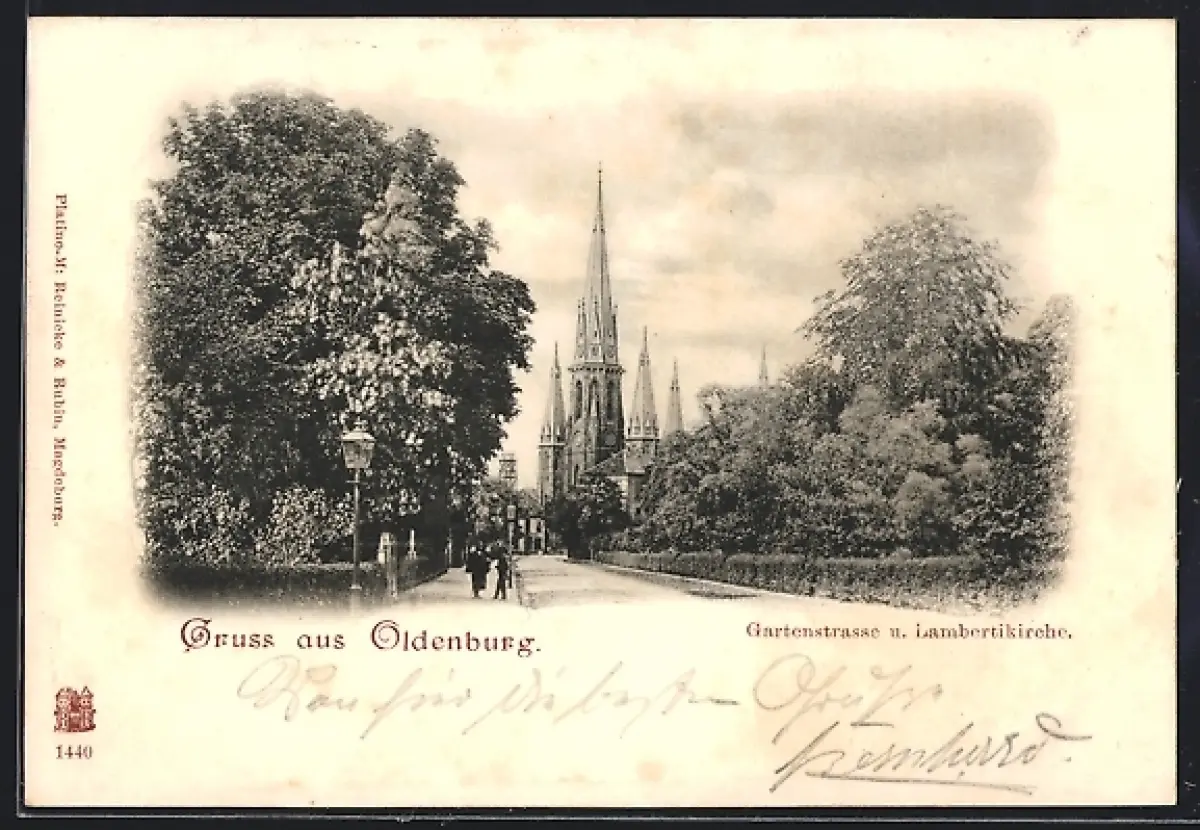 Platino-M: Reinicke & Rubin, Magdeburg.
Gruss aus Oldenburg.
Gartenstrasse u. Lambertikirche.
die besten Grüße
Bernhard.
1440